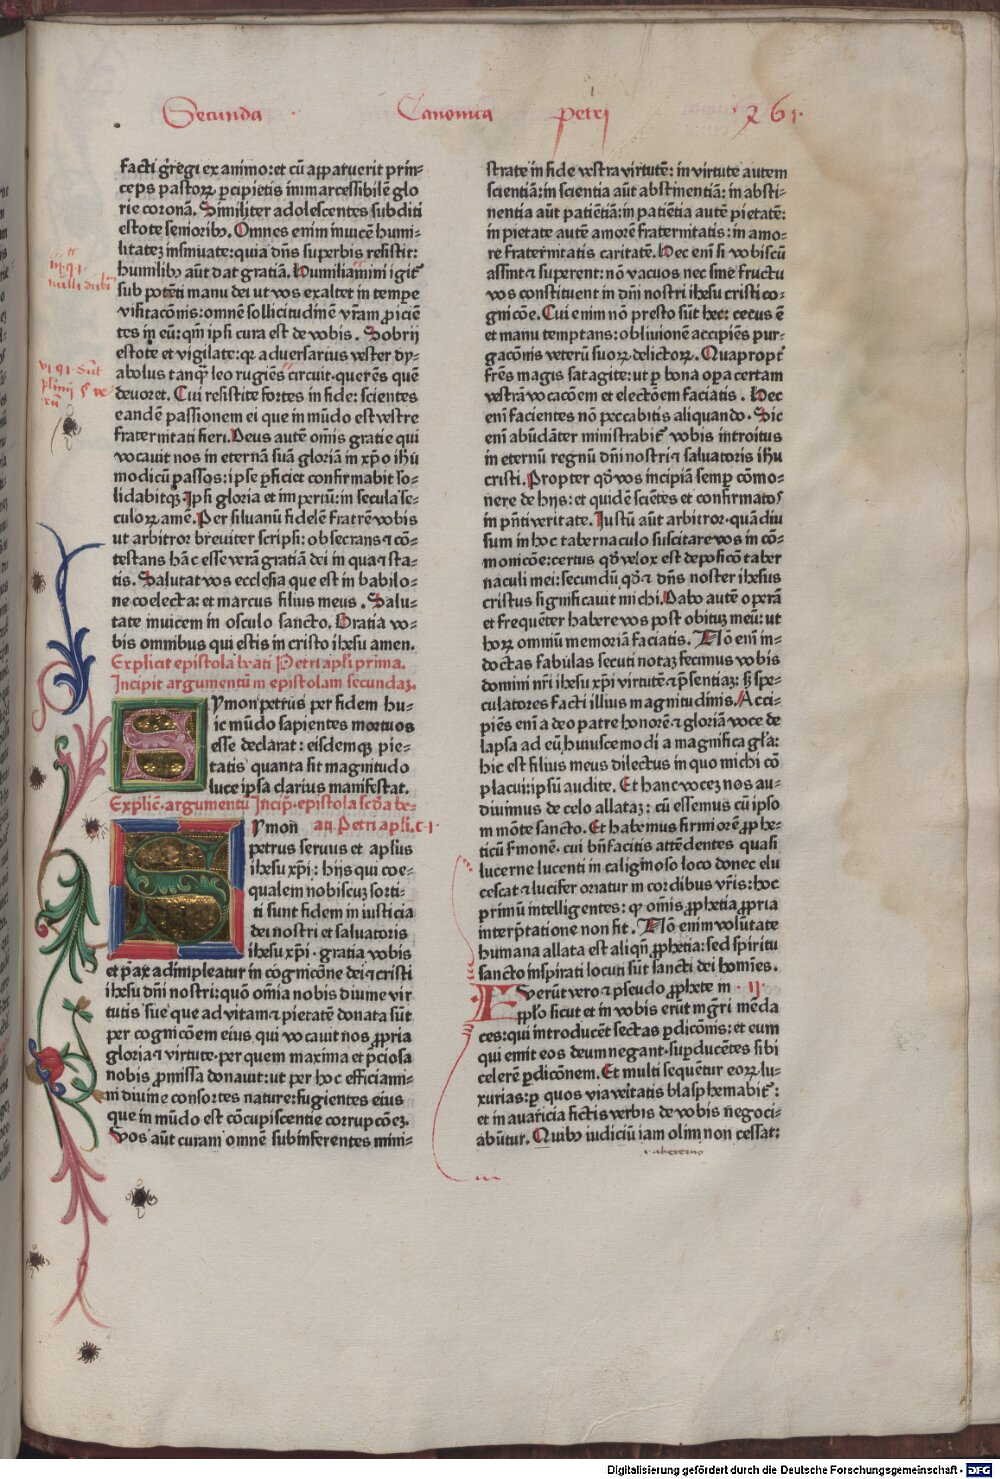 Secunda Canonica petri 261
facti gregi ex animo: et cū apparuerit prin-
ceps pastoꝝ ꝑcipietis immarcessibilē glo
rie coronā. Similiter adolescentes subditi
estote seniorib9. Omnes enim inuicē humi-
litatez insinuate: quia dn̄s superbis resistit:
humilib9 aūt dat gratiā. Humiliamini igit᷑
sub potēti manu dei ut vos exaltet in tempe
visitacōnis: omnē sollicitudinē vr̄am proiciē
tes in eū: qm̄ ipsi cura est de vobis. Sobrij
estote et vigilate: qꝛ aduersarius vester dy-
abolus tanqꝫ leo rugiēs circuit querēs quē
deuoret. Cui resistite fortes in fide: scientes
eandē passionem ei que in mūdo est vestre
fraternitati fieri. Deus autē om̄is gratie qui
vocauit nos in eternā suā gloriā in xp̄o ih̄u
modicū passos: ipse ꝑficiet confirmabit so-
lidabitqꝫ. Ipsi gloria et imperiū: in secula se-
culoꝝ amē. Per siluanū fidelē fratrē vobis
ut arbitror breuiter scripsi: obsecrans ⁊ cō-
testans hāc esse verā gratiā dei in qua ⁊ sta-
tis. Salutat vos ecclesia que est in babilo-
ne coelecta: et marcus filius meus. Salu-
tate inuicem in osculo sancto. Gratia vo-
bis omnibus qui estis in cristo ihesu amen.
Explicit epistola beati Petri apl̄i prima.
Incipit argumentū in epistolam secundaꝫ.
Symon petrus per fidem hu-
ic mūdo sapientes mortuos
esse declarat: eisdemqꝫ pie-
tatis quanta sit magnitudo
luce ipsa clarius manifestat.
Explic̄. argumentū Incip̄. epistola scd̄a be-
ati Petri apl̄i. c. i.
Symon
petrus seruus et apl̄us
ihesu xp̄i: hijs qui coe-
qualem nobiscuꝫ sorti-
ti sunt fidem in iusticia
dei nostri et saluatoris
ihesu xp̄i. gratia vobis
et pax adimpleatur in cognicōne dei ⁊ cristi
ihesu dn̄i nostri: quō om̄ia nobis diuine vir
tutis sue que ad vitam ⁊ pietatē donata sūt
per cognicōem eius, qui vocauit nos ꝓpria
gloria ⁊ virtute. per quem maxima et p̄ciosa
nobis ꝓmissa donauit: ut per hoc efficiami-
ni diuine consortes nature: fugientes eius
que in mūdo est cōcupiscentie corrupcōeꝫ.
Vos aūt curam omnē subinferentes mini-
strate in fide vestra virtutē: in virtute autem
scientiā: in scientia aūt abstinentiā: in absti-
nentia aūt patiētiā: in patiētia autē pietatē:
in pietate autē amorē fraternitatis: in amo-
re fraternitatis caritatē. Hec enī si vobiscū
assint ⁊ superent: nō vacuos nec sine fructu
vos constituent in dn̄i nostri ihesu cristi co-
gnicōe. Cui enim nō presto sūt hec: cecus ē
et manu temptans: obliuionē accipiēs pur-
gacōnis veterū suoꝝ delictoꝝ. Quapropt᷑
fr̄es magis satagite: ut ꝑ bona oꝑa certam
vestrā vocacōem et electōem faciatis. Hec
enī facientes nō peccabitis aliquando. Sic
enī abūdāter ministrabit᷑ vobis introitus
in eternū regnū dn̄i nostri ⁊ saluatoris ih̄u
cristi. Propter qd̄ vos incipiā semꝑ cōmo-
nere de hijs: et quidē sciētes et confirmatos
in p̄nti veritate. Iustū aūt arbitror. quādiu
sum in hoc tabernaculo suscitare vos in cō-
monicōe: certus qd̄ velox est deposicō taber
naculi mei: secundū qd̄ ⁊ dn̄s noster ihesus
cristus significauit michi. Dabo autē operā
et frequēter habere vos post obituꝫ meū: ut
hoꝝ omniū memoriā faciatis. Nō enī in-
doctas fabulas secuti notaꝫ fecimus vobis
domini nr̄i ihesu xp̄i virtutē ⁊ p̄sentiaꝫ: sꝫ spe-
culatores facti illius magnitudinis. Acci-
piēs enī a deo patre honorē ⁊ gloriā voce de
lapsa ad eū huiuscemodi a magnifica gl̄a:
hic est filius meus dilectus in quo michi cō
placui: ipsū audite. Et hanc vocez nos au-
diuimus de celo allataꝫ: cū essemus cū ipso
in mōte sancto. Et habemus firmiorē ꝓphe-
ticū s̄monē. cui bn̄facitis attēdentes quasi
lucerne lucenti in caliginoso loco donec elu
cescat ⁊ lucifer oriatur in cordibus vr̄is: hoc
primū intelligentes: qꝛ om̄is ꝓphetia ꝓpria
interp̄tatione non fit. Nō enim volūtate
humana allata est aliqn̄ ꝓphetia: sed spiritu
sancto inspirati locuti sūt sancti dei homīes.
Fuerūt vero ⁊ pseudo ꝓphete in . II.
ppl̄o sicut et in vobis erūt mḡri mēda
ces: qui introducēt sectas ꝑdicōnis: et eum
qui emit eos deum negant. suꝑducētes sibi
celerē ꝑdicōnem. Et multi sequētur eoꝝ lu-
xurias: ꝑ quos via veritatis blasphemabit᷑:
et in auaricia fictis verbis de vobis negoci-
abūtur. Quib9 iudiciū iam olim non cessat:
Digitalisierung gefördert durch die Deutsche Forschungsgemeinschaft - DFG